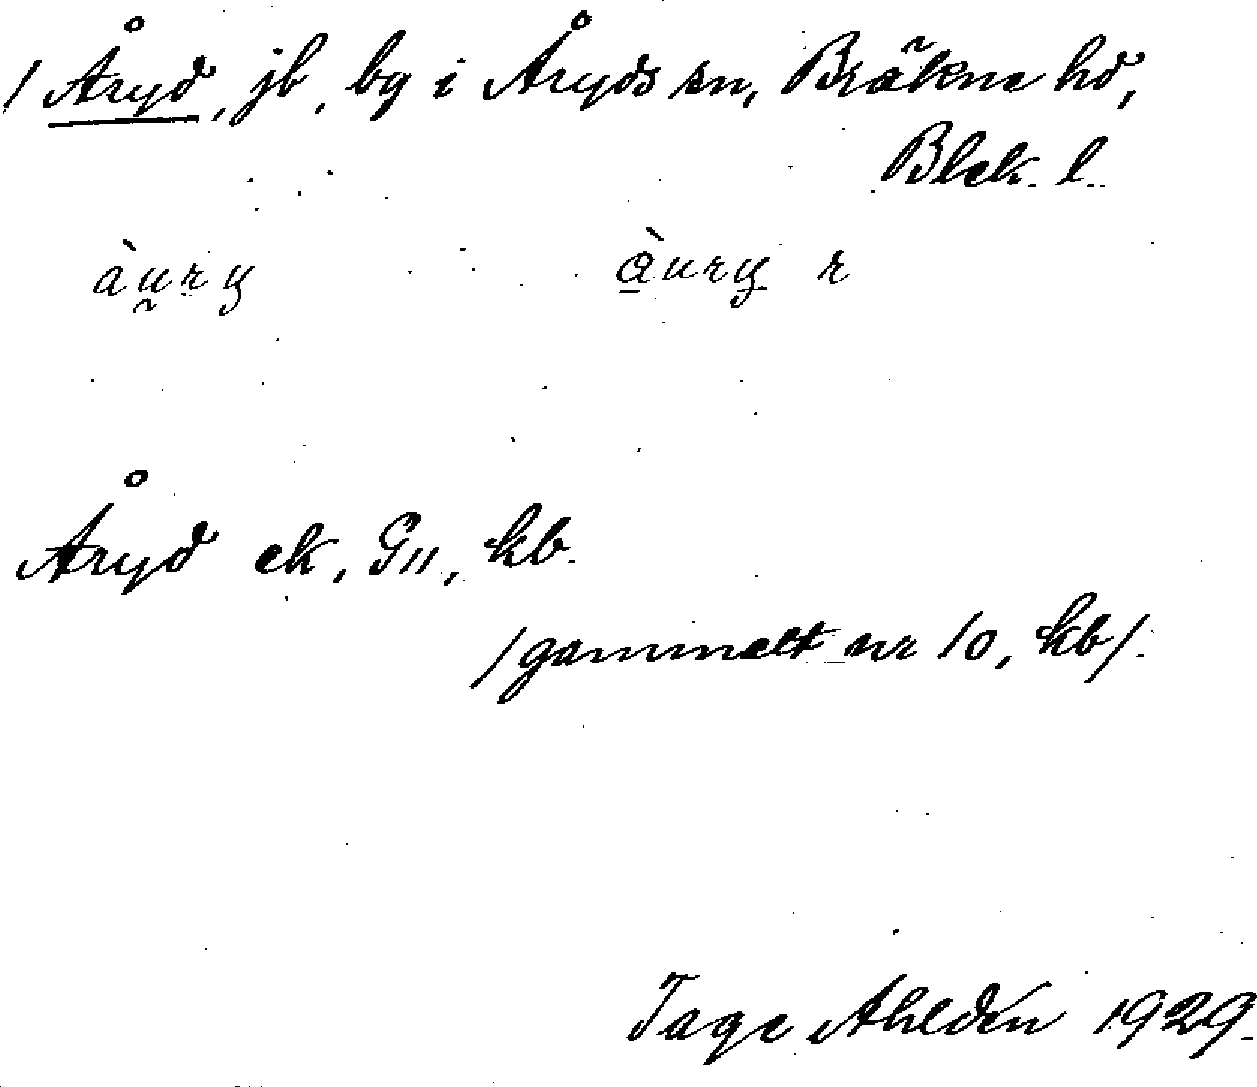 / Åryd, jb, by i Åryds sn, Bräkne hd,
Blek. l.
àu̯ry àury r
Åryd ek, G11, kb.
/gammelt nr 10, kb/.
Tage Ahldén 1929.